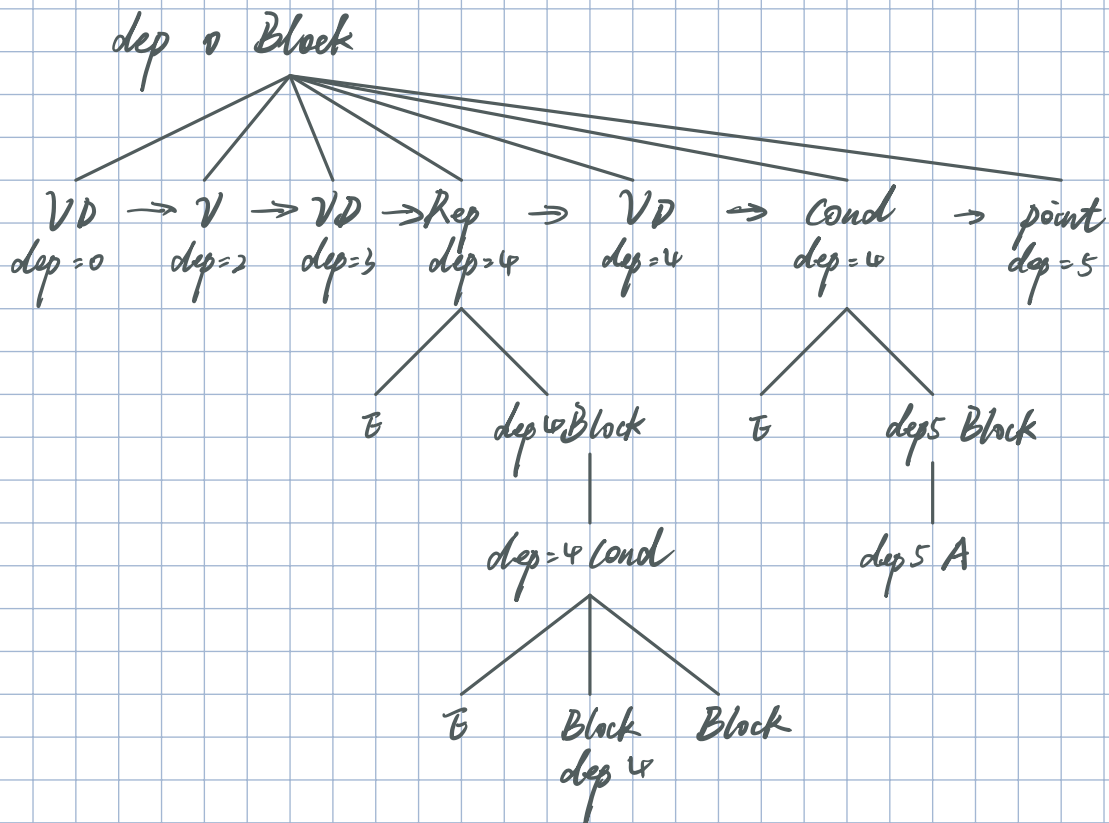 dep 0 Block
VD → V → VD → Rep → VD → Cond → point
dep=0 dep=2 dep=3 dep=4 dep=4 dep=4 dep=5
E dep4Block E dep5 Block
dep=4 Cond dep5 A
E Block Block
dep 4